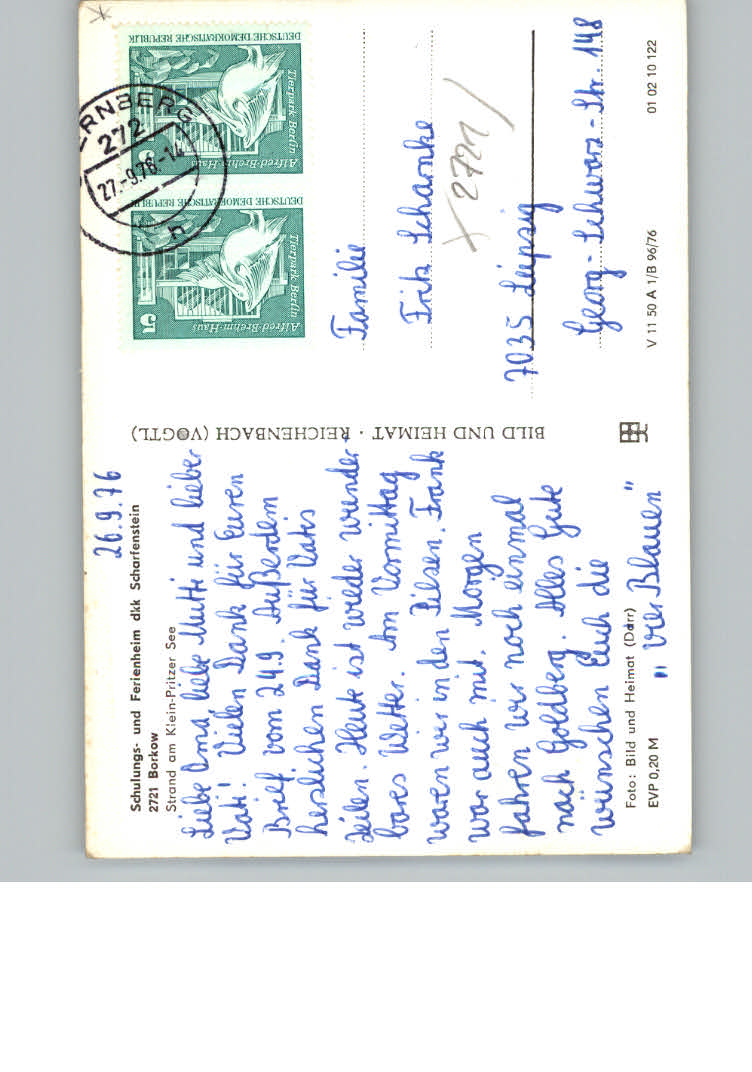 26.9.76
Schulungs- und Ferienheim dkk Scharfenstein
2721 Borkow
Strand am Klein-Pritzer See
Liebe Oma, liebe Mutti und lieber
Vati! Vielen Dank für Euren
Brief vom 24.9. Außerdem
herzlichen Dank für Vatis
Zeilen. Heute ist wieder wunder-
bares Wetter. Am Vormittag
waren wir in den Pilsen. Frank
war auch mit. Morgen
fahren wir noch einmal
nach Goldberg. Alles Gute
wünschen Euch die
"Vier Blauen"
Foto: Bild und Heimat (Darr)
EVP 0,20 M
BILD UND HEIMAT · REICHENBACH (VOGTL)
DEUTSCHE DEMOKRATISCHE REPUBLIK
Tierpark Berlin
Alfred-Brehm-Haus
5
DEUTSCHE DEMOKRATISCHE REPUBLIK
Tierpark Berlin
Alfred-Brehm-Haus
5
ERNBERG
272
27.-9.76.-14
h
Familie
Fritz Scharnke
X 2721/
7035 Leipzig
Georg-Schwarz-Str. 148
V 11 50 A 1/B 96/76
01 02 10 122